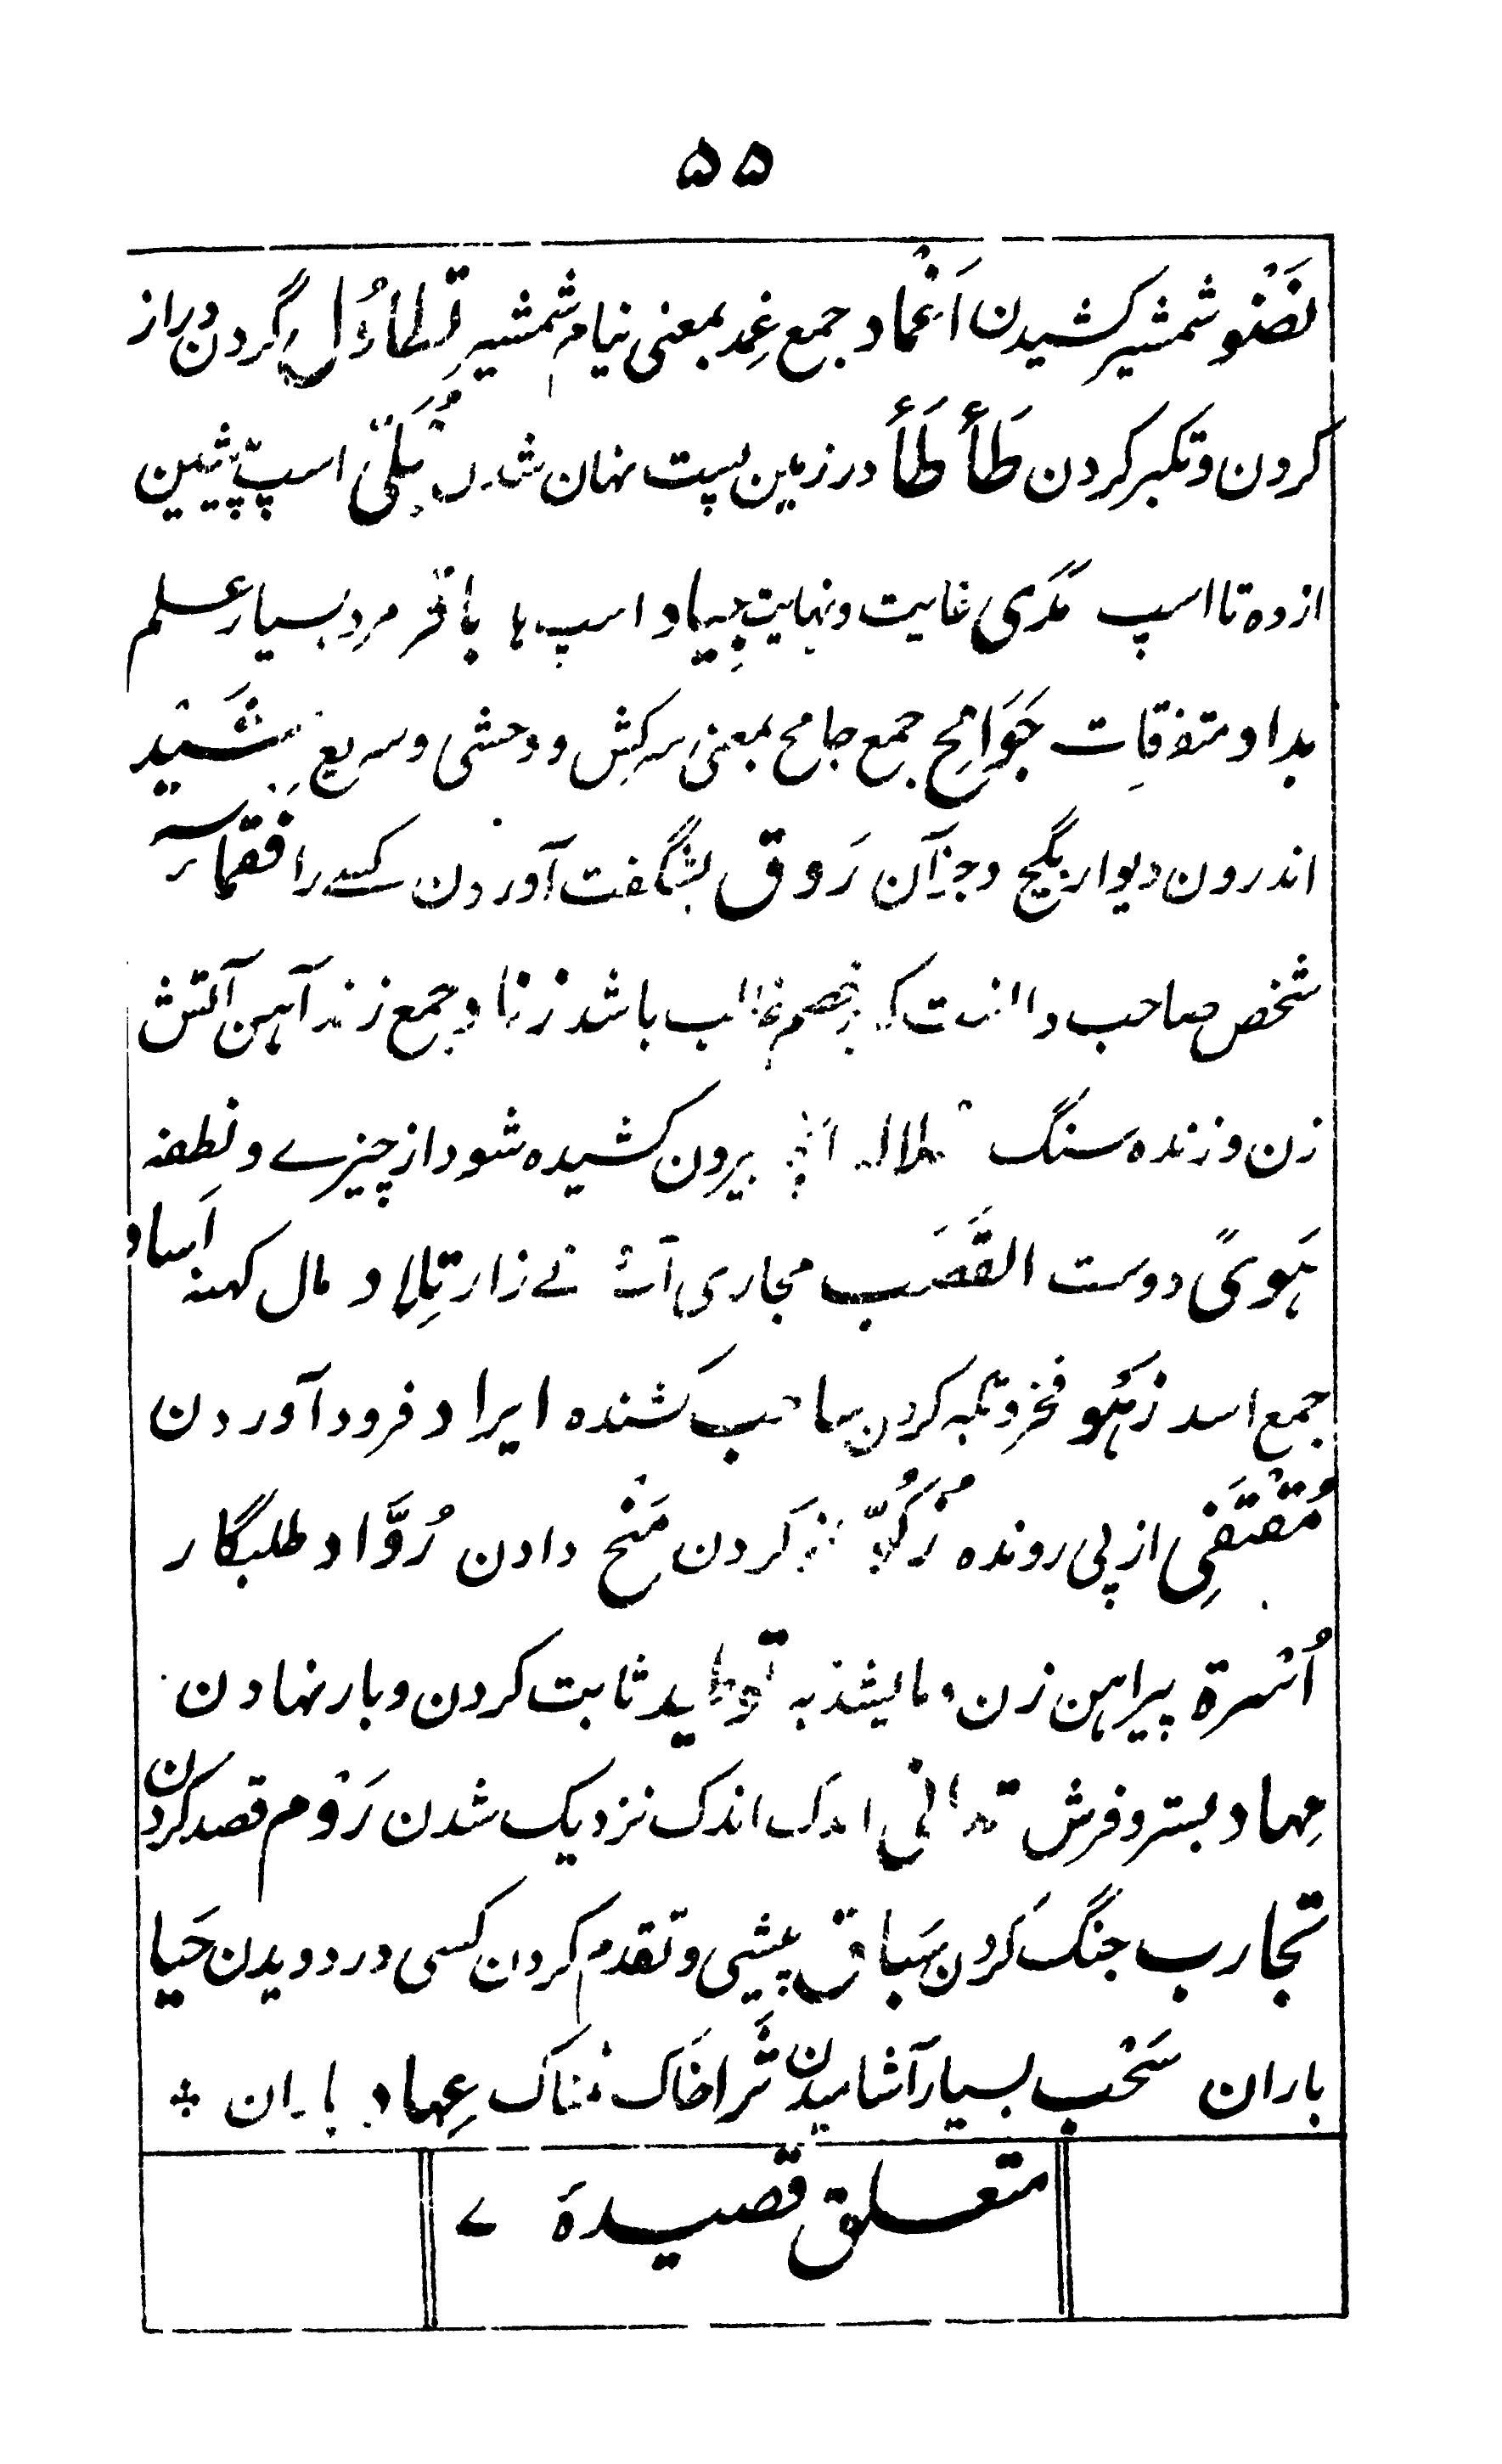 ۵۵
نَضْو شمشیر کشیدن اَغْماد جمع غِمد بمعنی نیام شمشیر تطاوُل گردن دراز
کردن و تکبر کردن طَأطَأ در زمین پست نهان شدن مُجَلّی اسپ پیشین
از ده تا اسپ مَدَی غایت و نهایت جِیاد اسپ ہا باقر مرد بسیار علم
بداد متفرقات جَوَامِح جمع جامح بمعنی سرکش و وحشی و سریع شَیْد
اندرون دیوار بگچ و جز آن رَوق بشگفت آوردن کسے را فقماسہ
شخص صاحب دانست کہ بخصم غالب باشد زناد جمع زند آہن آتش
زن و زندہ سنگ سلالہ آنچہ بیرون کشیدہ شود از چیزے و نطفہ
ہَویً دوست القَصَب مجاری آب نے زار تِلاد مال کہنہ اَساد
جمع اسد زَہْو فخر و تکبر کردن ساحب کَشندہ ایراد فرود آوردن
مُقْتَفِی از پی روندہ کردن مَنْح دادن رُوَّاد طلبگار
اُسْرة پیراہن زن و مایشذبہ توطید ثابت کردن و بار نہادن
مِہاد بستر و فرش تدانی اندک اندک نزدیک شدن رَوْم قصد کردن
تجارب جنگ کردن سَباق پیشی و تقدم کردن کسی در دویدن حَیا
باران سَحْب بسیار آشامیدن ثَرا خاک نمناک عِہاد باران ؞
متعلق قصیدۂ ۷